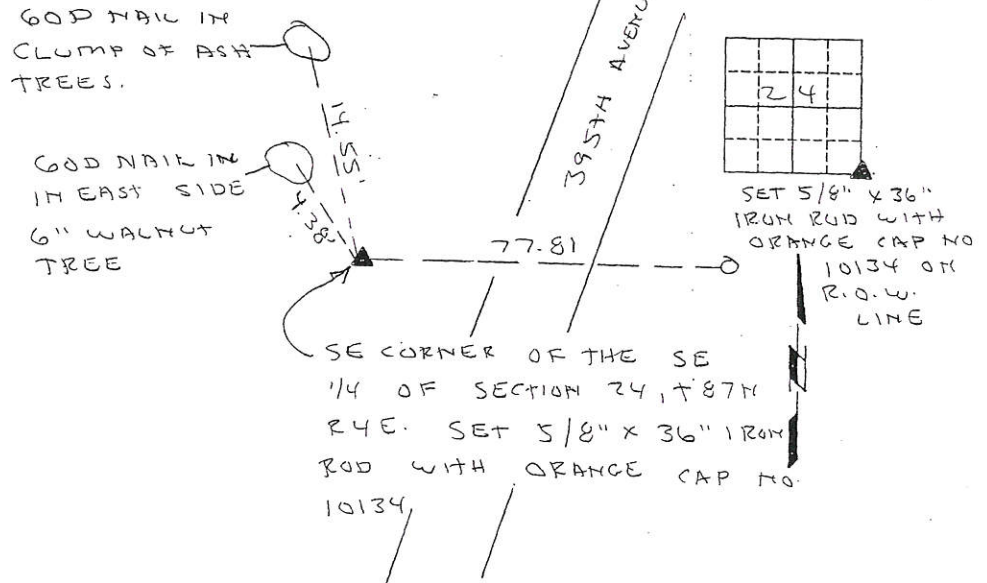 60D NAIL IN
CLUMP OF ASH
TREES.
14.55'
60D NAIL IN
IN EAST SIDE
6" WALNUT
TREE
4.38'
395TH AVENU
77.81
24
SET 5/8" X 36"
IRON ROD WITH
ORANGE CAP NO
10134 ON
R.O.W.
LINE
N
SE CORNER OF THE SE
1/4 OF SECTION 24, T87N
R4E. SET 5/8" X 36" IRON
ROD WITH ORANGE CAP NO.
10134